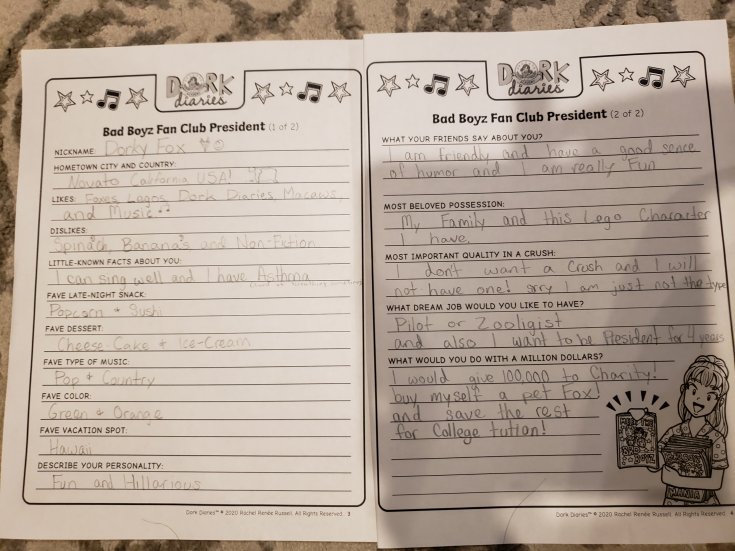 DORK
diaries
Bad Boyz Fan Club President (1 of 2)
NICKNAME: Dorky Fox
HOMETOWN CITY AND COUNTRY:
Novato California USA!
LIKES: Foxes, Legos, Dork Diaries, Macaws,
and Music
DISLIKES:
Spinach, Banana's and Non-Fiction
LITTLE-KNOWN FACTS ABOUT YOU:
I can sing well and I have Asthma
FAVE LATE-NIGHT SNACK:
Popcorn + Sushi
FAVE DESSERT:
Cheese-Cake + Ice-Cream
FAVE TYPE OF MUSIC:
Pop + Country
FAVE COLOR:
Green + Orange
FAVE VACATION SPOT:
Hawaii
DESCRIBE YOUR PERSONALITY:
Fun and Hillarious
Dork Diaries™ © 2020 Rachel Renée Russell. All Rights Reserved. 3
DORK
diaries
Bad Boyz Fan Club President (2 of 2)
WHAT YOUR FRIENDS SAY ABOUT YOU?
I am friendly and have a good sence
of humor and I am really Fun
MOST BELOVED POSSESSION:
My Family and this Lego Character
I have.
MOST IMPORTANT QUALITY IN A CRUSH:
I don't want a Crush and I will
not have one! srry I am just not the type
WHAT DREAM JOB WOULD YOU LIKE TO HAVE?
Pilot or Zooligist
and also I want to be President for 4 years
WHAT WOULD YOU DO WITH A MILLION DOLLARS?
I would give 100,000 to Charity!
buy myself a pet Fox!
and save the rest
for College tution!
MANIA
Dork Diaries™ © 2020 Rachel Renée Russell. All Rights Reserved. 4